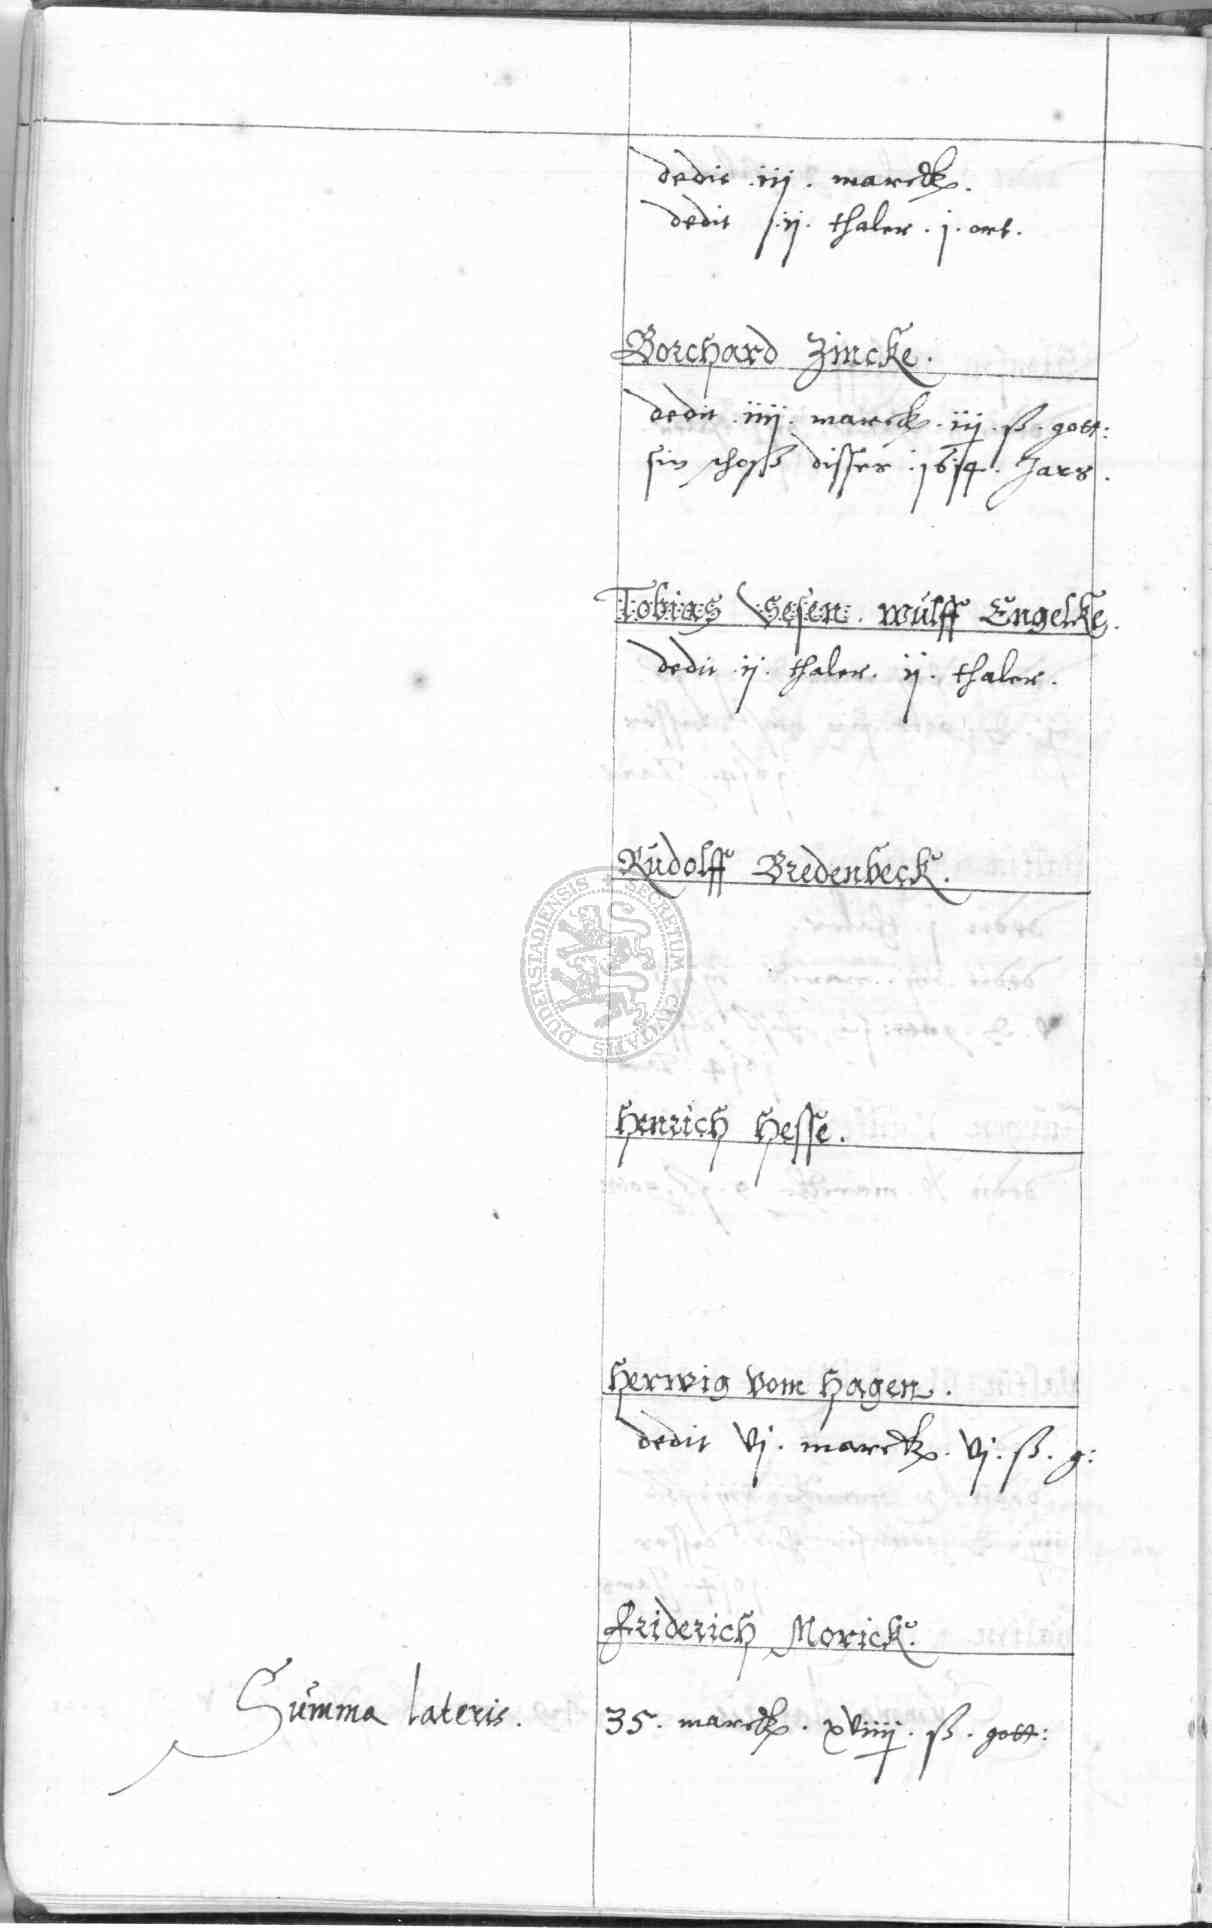 dedit .iij. marck.
dedit .ij. thaler. j. ort.
Borchard Zincke.
dedit .iiij. marck. iij. ß. gott:
sin schoß disser .1614. Jars.
Tobias Vesen. Wulff Engelke.
dedit ij. thaler. ij. thaler.
Rudolff Bredenbeck.
SECRETUM CIVITATIS DUDERSTADIENSIS
Henrich Hesse.
Herwig vom Hagen.
dedit vj. marck. vj. ß. g:
Friderich Morick.
Summa lateris. 35. marck. xviiij. ß. gott: